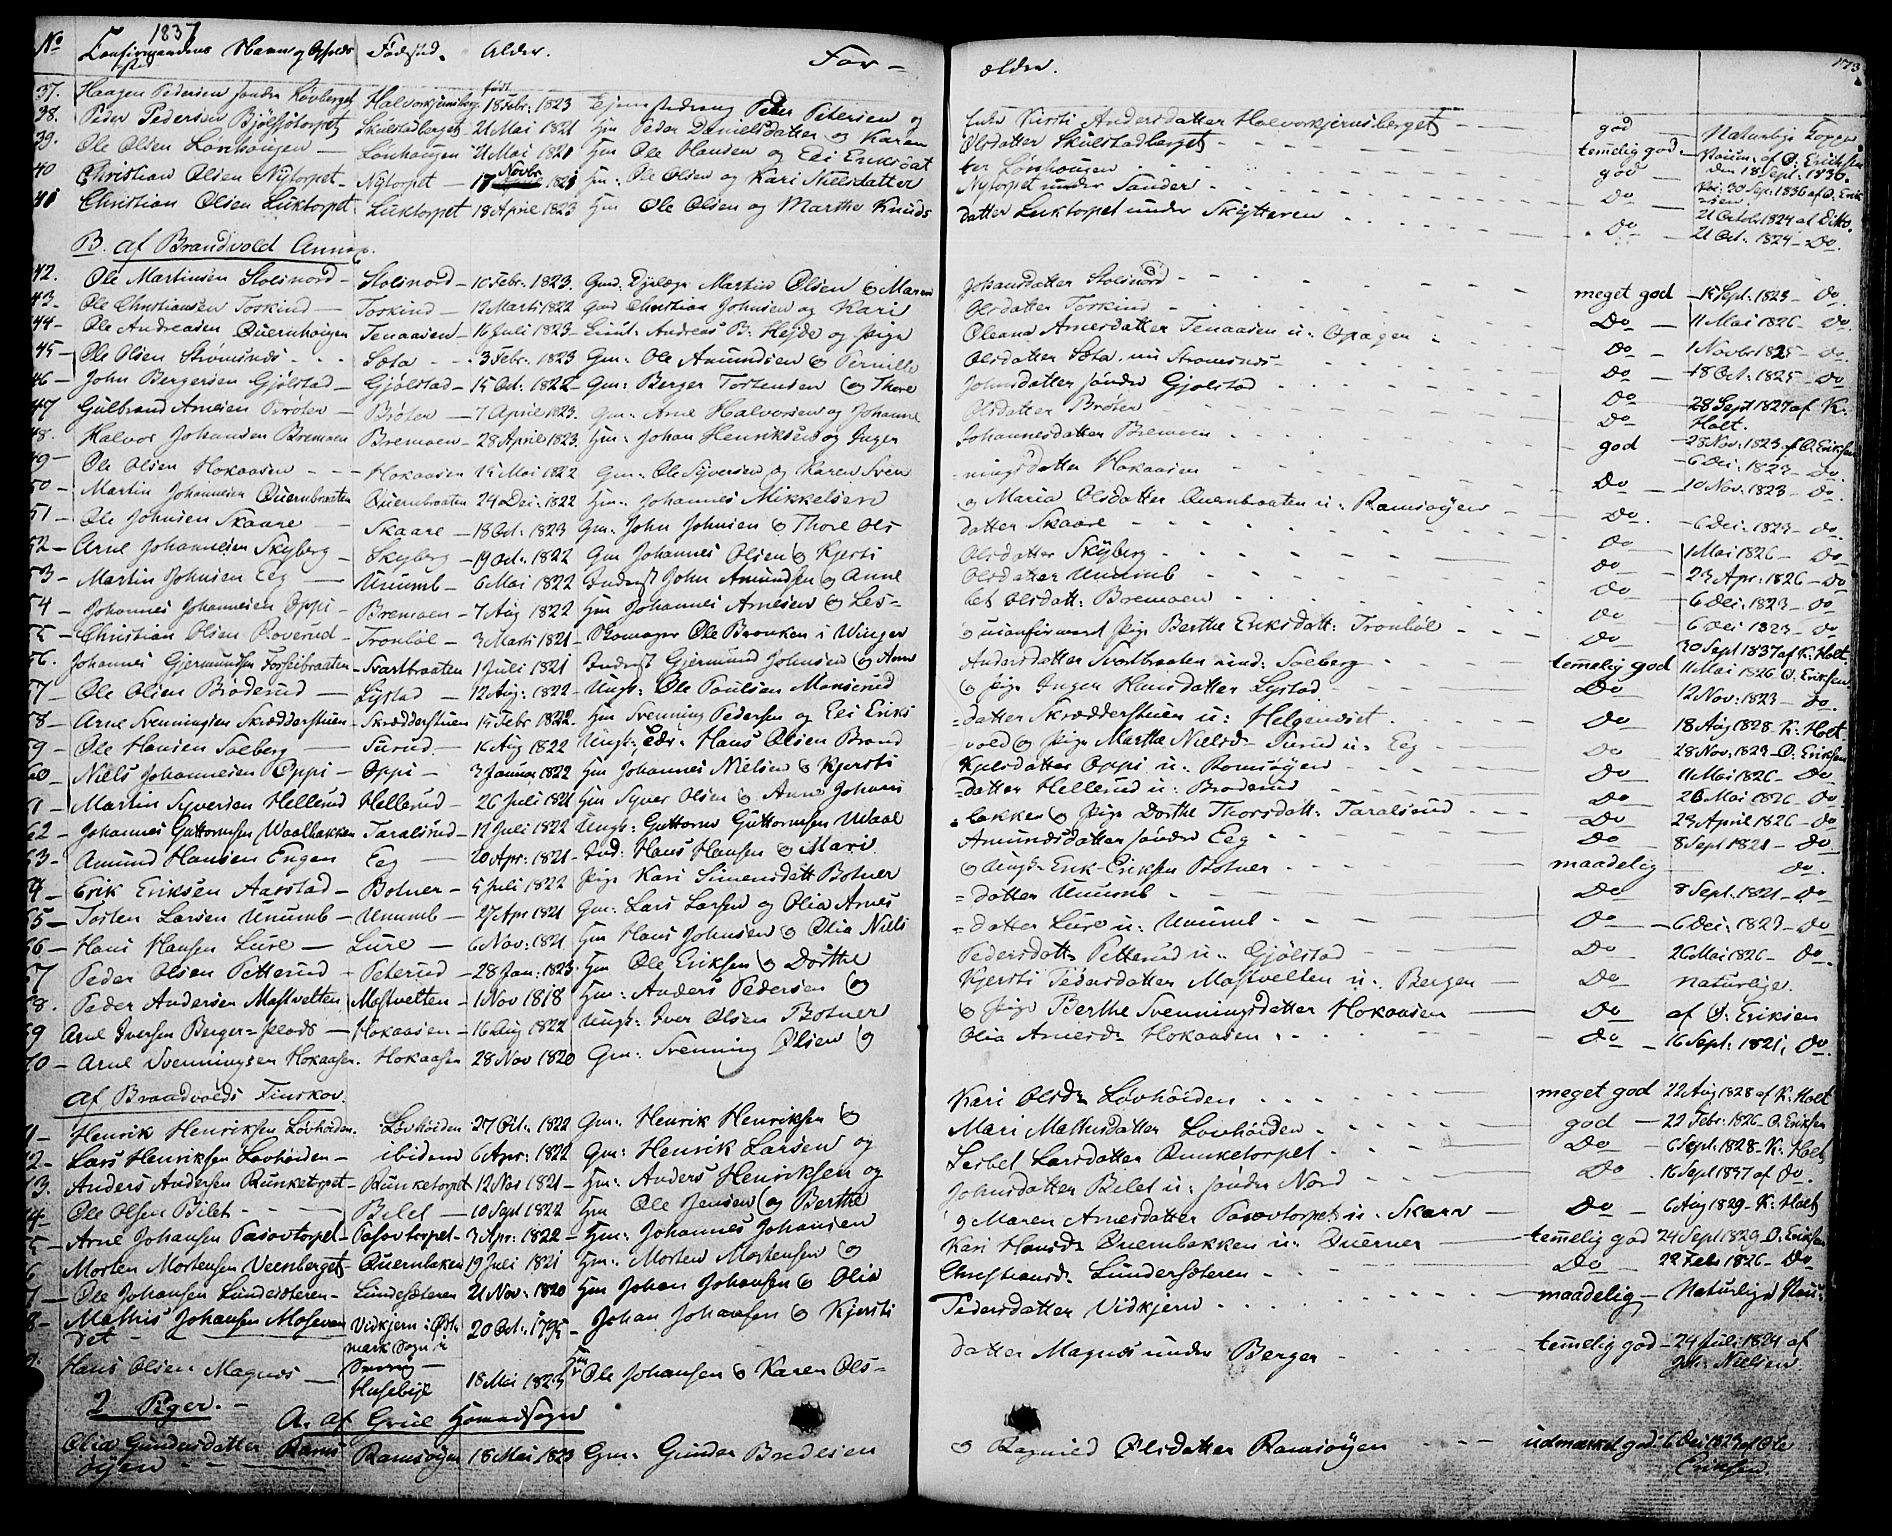 1837
No Confirmandens Navn og Opholds Fødested. Alder. For- ældre. 173
sted
født
37. Haagen Pedersen søndre Løvberget Halvorkjernsberg. 18 Febr: 1823 Peder Petersen og
38. Peder Pedersen Skulstadberget 21 Mai 1821 Hm Peder Danielsdatter og Karen
39. Ole Olsen Lønhaugen — Lønhaugen 21 Mai 1821 Hm Ole Hansen og Eli Eriksdat
40 Christian Olsen Nytorpet – Nytorpet – 17 Novbr 1821 Hm: Ole Olsen og Kari Nielsdatter
41 Christian Olsen Luktorpet Luktorpet 18 April 1823 Hm Ole Olsen og Marthe Knuds
Kirsti Andersdatter Halvorkjernsberget god
Olsdatter Skulstadberget temelig god
ter Lønhaugen god 18 Sept: 1836.
Nytorpet under Sander Do
datter Luktorpet under Skytteren Do 21 Oct: 1824 – Do.
B. af Brandvold Annex.
42. Ole Martinsen Stolsnord – Stolsnord – 10 Febr. 1823. Martin Olsen & Maren Johansdatter Stolsnord meget god 15 Sept: 1823 – Do.
43 – Ole Christiansen Torkind – Torkind – 12 Marti 1822 Christian Johnsen og Kari Olsdatter Torkind Do 11 Mai 1826 – Do.
44 – Ole Andreasen Quernhaugen Tenaasen – 16 Juli 1823 – Andreas B: Hejde og Pige Oleana Arnesdatter Tenaasen u: Opagen Do 1 Novbr 1825 – Do.
45 – Ole Olsen Strømsnes Sæta 3 Febr. 1823 Gm: Ole Amundsen & Pernille Olsdatter Sæta Do 18 Oct: 1825 – Do
46 – John Bergersen Gjølstad – Gjølstad – 15 Oct: 1822 – Gm: Berger Tostensen & Thore Johnsdatter søndre Gjølstad Do 28 Sept 1827 af K: Holt.
47 Gulbrand Arnesen Brøter – Brøter – 7 April 1823. Gm: Arne Halvorsen og Johanne Olsdatter Brøter Do
48. Halvor Johansen Bremoen Bremoen – 28 April 1823. Hm: Johan Henriksen og Inger Johannesdatter Bremoen god 28 Nov. 1823 af O. Eriksen
49 Ole Olsen Hokaasen – Hokaasen 15 Mai 1822 Gm: Ole Syversen og Karen Sven ningsdatter Hokaasen Do 6 Dec: 1823 – Do
50 – Martin Johannesen Quernbraaten Quernbraaten 24 Dec: 1822 Hm: Johannes Mikkelsen & Maria Olsdatter Quernbraaten u: Ramsøyen Do 10 Nov: 1823 – Do.
51 – Ole Johnsen Skaare – Skaare – 18 Oct. 1823 Gm: John Johnsen & Thore Ols datter Skaare Do 6 Dec: 1823 – Do.
52 – Arne Johannesen Skyberg – Skyberg – 19 Oct. 1822 Gm Johannes Olsen & Kjersti Olsdatter Skyberg Do 1 Mai 1826 – Do
53 – Martin Johnsen Eeg – Unumb – 6 Mai 1822 Inderst John Amundsen & Anne Olsdatter Unumb Do 23 Apr: 1826 – Do
54 – Johannes Johannesen Oppi – Bremoen – 7 Aug 1822 Hm Johannes Arnesen & Les= bet Olsdatt: Bremoen Do 6 Dec: 1823 – Do
55 – Christian Olsen Roverud – Tronbøl – 3 Marti 1821 – Skomager Ole Bronken i Winger & Pige Berthe Eriksdatt: Tronbøl Do 30 Sept 1837 af K: Holt.
56. Johannes Gjermundsen Svartbraaten 1 Juli 1821 Inderst Gjermund Johnsen & Anne Andersdatter Svartbraaten und: Solberg temelig god 11 Mai 1826 O. Eriksen
57 Ole Olsen Broderud – Lystad – 12 Aug: 1822 – Ungk: Ole Poulsen Monserud & Pige Inger Hansdatter Lystad Do 12 Nov: 1823 – Do.
58 – Arne Svenningsen Skrædderstuen – Skrædderstuen 15 Febr 1822. Hm Svenning Pedersen og Eli Eriks =datter Skrædderstuen u: Helgeneset Do 18 Aug 1828 K: Holt.
59 – Ole Hansen Solberg – Surud. – 16 Aug 1822 Ungk: Hans Olsen Brand vold & Pige Martha Nielsd – Surud u: Eeg Do 28 Nov: 1823 – O. Eriksen
60 – Niels Johannesen Oppi – Oppi – 3 Januar 1822 Hm Johannes Nielsen & Kjersti datter Oppi u: Ramsøyen Do 11 Mai 1826 – Do
61 – Martin Syversen Hellerud Hellerud – 26 Juli 1821 Hm Syver Olsen & Anne Johans =datter Hellerud u: Broderud Do 26 Mai 1826 – Do
62 – Johannes Guttormsen Waalbakken Taralsrud – 12 Juli 1822 Ungk: Guttorm Guttormsen Waal bakken & Pige Dorthe Thorsdatt: Taralsrud Do 23 April 1826 – Do
63 – Amund Hansen Engen Eeg – 20 Apr: 1821 – Ind: Hans Hansen & Mari Amundsdatter søndre Eeg Do 8 Sept 1821 – Do.
64 – Erik Eriksen Aarstad – Botner – 5 Juli 1822 Pige Kari Simensdatt Botner & Ungk: Erik Eriksen Botner maadelig Do.
65 – Tosten Larsen Unumb – Unumb – 27 Apr 1821 Gm: Lars Larsen og Olia Arnes =datter Unumb Do 8 Sept. 1821 – Do
66 – Hans Hansen Lure – Lure – 6 Nov: 1821 Hm Hans Johnsen & Olia Niels =datter Lure u: Unumb Do 6 Dec: 1823 – Do
67 Peder Olsen Petterud – Peterud – 28 Jan: 1823 – Hm Ole Eriksen & Dorthe Pedersdatt: Petterud u: Gjølstad Do 26 Mai 1826 – Do.
68. Peder Andersen Mastvelten Mastvelten – 1 Nov 1818 Hm: Anders Pedersen & Kjersti Pedersdatter Mastvelten u: Bergen Do naturlige.
69 Arne Iversen Berger= – Hokaasen – 16 Aug 1822 Ungk: Iver Olsen Botner & Pige Berthe Svenningsdatter Hokaasen Do af O: Eriksen
70 – Arne Svenningsen Hokaasen. Hokaasen 28 Nov 1820 Gm: Svenning Olsen & Olia Arnesd: Hokaasen Do 16 Sept: 1821, Do.
af Brandvolds Finskov.
71 – Henrik Henriksen Løvhøiden. Løvhøiden 27 Oct. 1822 Gm: Henrik Henriksen & Kari Olsd: Løvhøiden meget god 22 Aug 1828 af K: Holt
72 – Lars Henriksen Løvhøiden – ibidem 6 Apr: 1822 Gm: Henrik Larsen og Mari Mathisdatter Løvhøiden god 22 Febr. 1826 O. Eriksen
73. Anders Andersen Runketorpet – Runketorpet 12 Nov 1821 – Hm: Anders Henriksen og Lisbet Larsdatter Runketorpet Do 6 Sept: 1828 – K: Holt
74 – Ole Olsen Bilet – Bilet – 10 Sept 1822 Hm Ole Jensen & Berthe Johnsdatter Bilet u: søndre Nord Do 16 Sept 1837 af Do.
75 – Arne Johansen Pasovtorpet – Pasovtorpet – 3 Apr: 1822 – Hm: Johannes Johansen & Maren Arnesdatter Pasovtorpet u: Skarv Do 6 Aug 1829 – K: Holt
76 Morten Mortensen Veenberget Quernbaken 19 Juli 1821 Hm: Morten Mortensen & Kari Hansd: Quernbakken u: Querner temelig god 24 Sept 1829 O. Eriksen
77 – Ole Johansen Lundersæteren – Lundesæteren 21 Nov: 1820 Hm Johan Johansen & Olia Christiansd: Lundersæteren Do 22 Febr 1826 – Do
78 – Mathis Johansen Mosevan det Vidkjern i Øst mark Sogn i Sverrig – 20 Oct. 1795 – Johan Johansen & Kjersti Pedersdatter Vidkjern maadelig – Naturlige
79. Hans Olsen Magnæs – Husebye 18 Mai 1823 Hm Ole Johansen & Karen Ols= datter Magnæs under Berger temelig god – 24 Juli 1824 af Joh: Nielsen
2. Piger. –
A. af Grue Hovedsogn
Olia Gundersdatter Rams øyen Ramsøyen 18 Mai 1823 Gm: Gunder Bredesen & Ragnild Olsdatter Ramsøyen udmærket god 6 Dec 1823 af Ole Eriksen.